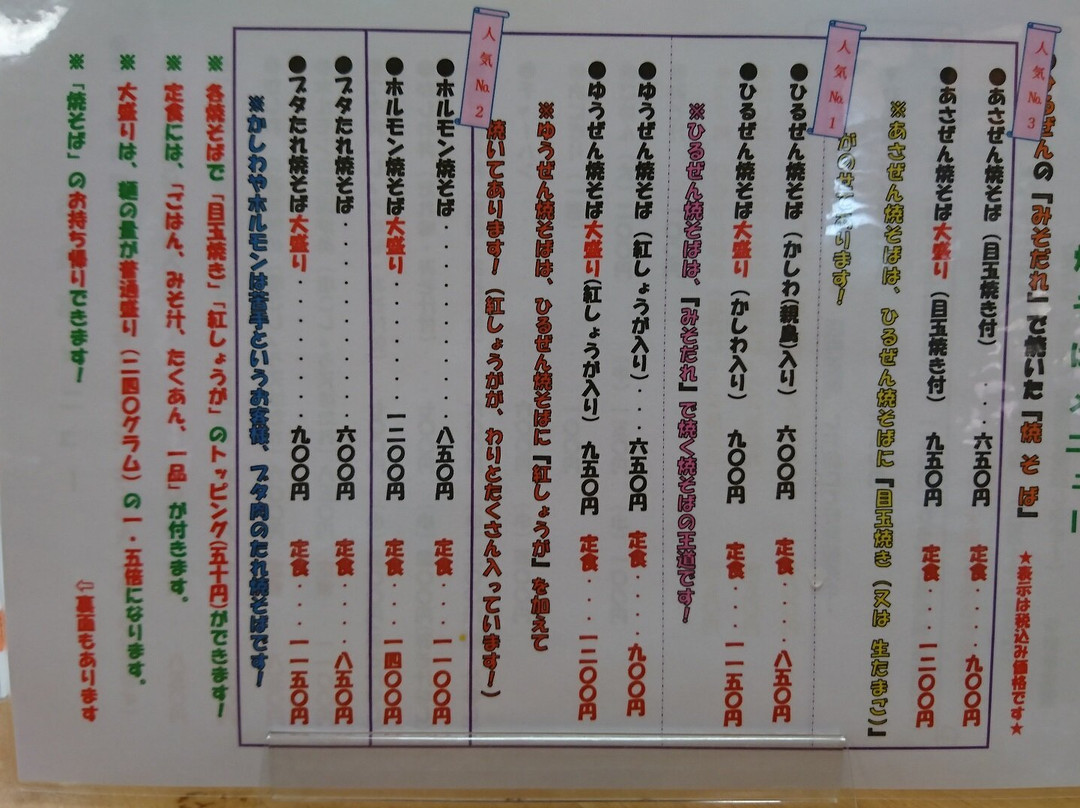 ひるぜんの『みそだれ』で焼いた『焼 そ ば』 ★表示は税込み価格です★
人気No.3
●あさぜん焼そば（目玉焼き付）．．．六五〇円 定食．．．．九〇〇円
●あさぜん焼そば大盛り（目玉焼き付） 九五〇円 定食．．．一二〇〇円
※あさぜん焼そばは、ひるぜん焼そばに『目玉焼き（又は 生たまご）』
がのせてあります！
人気No.1
●ひるぜん焼そば（かしわ（親鳥）入り） 六〇〇円 定食．．．．八五〇円
●ひるぜん焼そば大盛り（かしわ入り） 九〇〇円 定食．．．一一五〇円
※ひるぜん焼そばは、『みそだれ』で焼く焼そばの王道です！
●ゆうぜん焼そば（紅しょうが入り）．．六五〇円 定食．．．．九〇〇円
●ゆうぜん焼そば大盛り（紅しょうが入り） 九五〇円 定食．．．一二〇〇円
※ゆうぜん焼そばは、ひるぜん焼そばに『紅しょうが』を加えて
焼いてあります！（紅しょうがが、わりとたくさん入っています！）
人気No.2
●ホルモン焼そば．．．．．．．．八五〇円 定食．．．一一〇〇円
●ホルモン焼そば大盛り．．．．．一二〇〇円 定食．．．一四〇〇円
●ブタたれ焼そば．．．．．．．．六〇〇円 定食．．．．八五〇円
●ブタたれ焼そば大盛り．．．．．九〇〇円 定食．．．一一五〇円
※かしわやホルモンは苦手というお客様、ブタ肉のたれ焼そばです！
※各焼そばで「目玉焼き」「紅しょうが」のトッピング（五十円）ができます！
※定食には、「ごはん、みそ汁、たくあん、一品」が付きます。
※大盛りは、麺の量が普通盛り（二四〇グラム）の一．五倍になります。
※「焼そば」のお持ち帰りできます！ ⇦裏面もあります